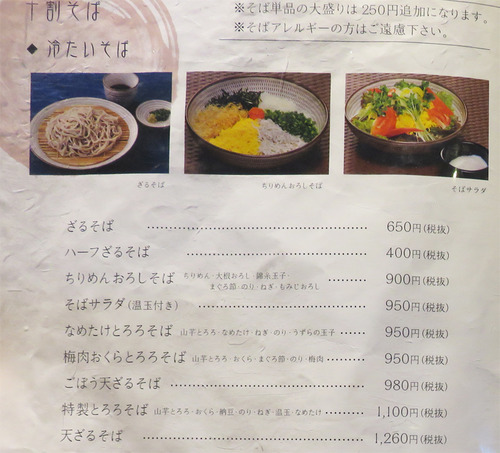 十割そば
※そば単品の大盛りは250円追加になります。
※そばアレルギーの方はご遠慮下さい。
◆ 冷たいそば
ざるそば
ちりめんおろしそば
そばサラダ
ざるそば 650円(税抜)
ハーフざるそば 400円(税抜)
ちりめんおろしそば ちりめん・大根おろし・錦糸玉子・ 900円(税抜)
まぐろ節・のり・ねぎ・もみじおろし
そばサラダ(温玉付き) 950円(税抜)
なめたけとろろそば 山芋とろろ・なめたけ・ねぎ・のり・うずらの玉子 950円(税抜)
梅肉おくらとろろそば 山芋とろろ・おくら・まぐろ節・のり・梅肉 950円(税抜)
ごぼう天ざるそば 980円(税抜)
特製とろろそば 山芋とろろ・おくら・納豆・のり・ねぎ・温玉・なめたけ 1,100円(税抜)
天ざるそば 1,260円(税抜)